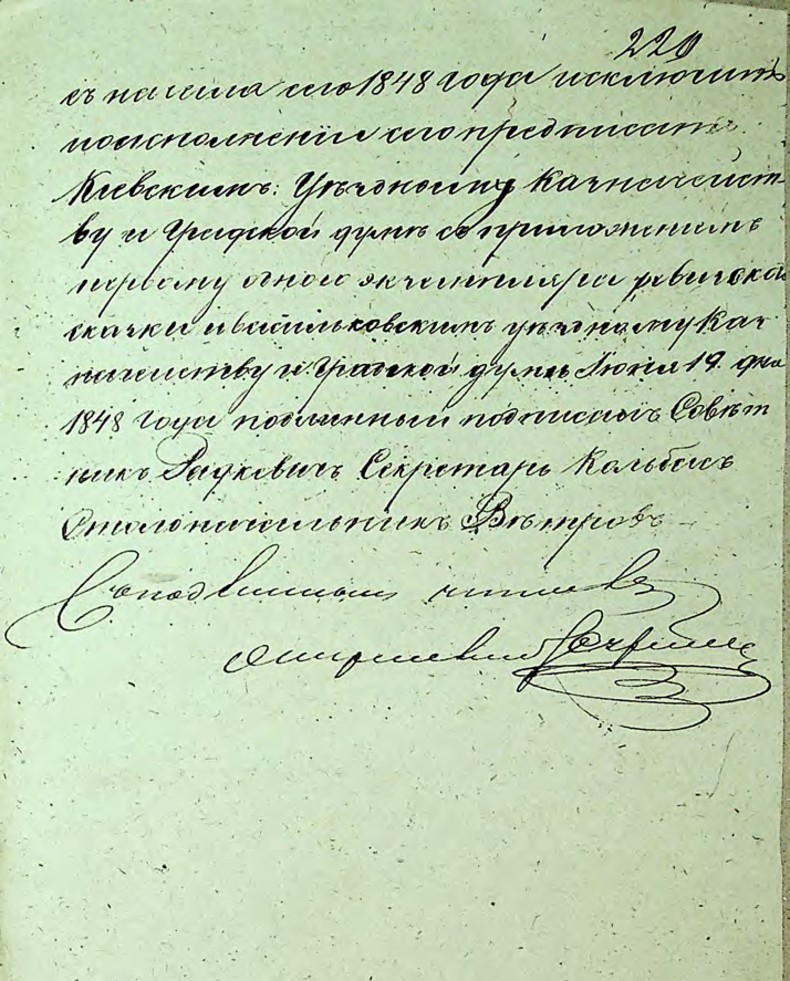 220
съ начала сего 1848 года исключить
по исполненіи сего предписать
Кіевскимъ: Уѣздному Казначейст-
ву и Градской думѣ съ приложеніемъ
первому одного экземпляра ревизской
сказки и васильковскимъ уѣздному Каз
начейству и Градской думѣ Іюня 19. дня
1848 года подлинный подписалъ Совѣт
никъ Рауковичъ Секретарь Кольбасъ
Столоначальникъ Вѣтровъ
Съ подлиннымъ читалъ